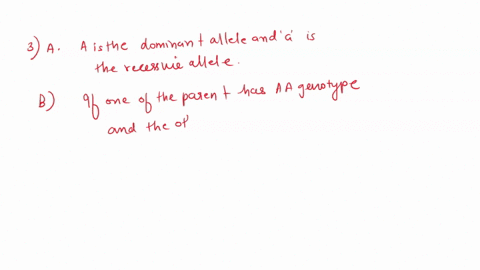 3) A. A is the dominant allele and 'a' is
the recessive allele.
B) If one of the parent has AA genotype
and the ot